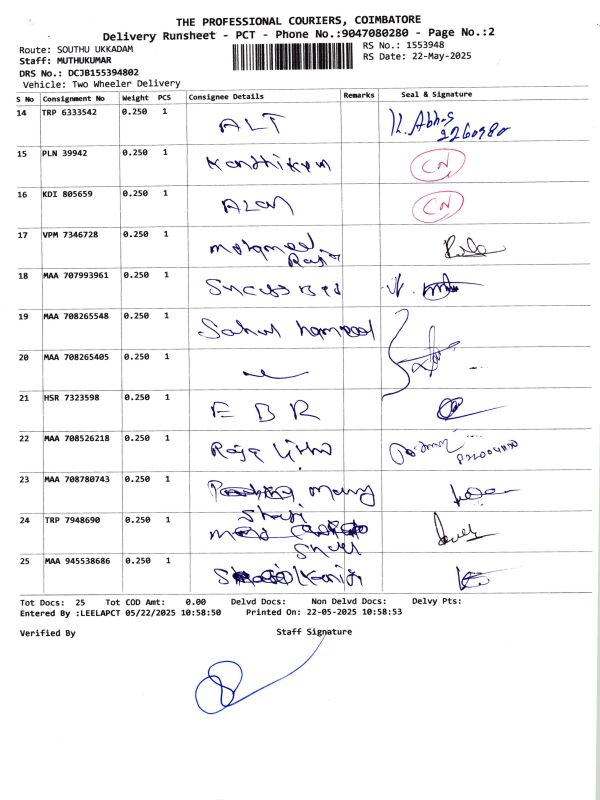 THE PROFESSIONAL COURIERS, COIMBATORE
Delivery Runsheet - PCT - Phone No.:9047080280 - Page No.:2
Route: SOUTHU UKKADAM
RS No.: 1553948
Staff: MUTHUKUMAR
RS Date: 22-May-2025
DRS No.: DCJB155394802
Vehicle: Two Wheeler Delivery
S No Consignment No Weight PCS Consignee Details Remarks Seal & Signature
14 TRP 6333542 0.250 1 ALT
15 PLN 39942 0.250 1 CN
16 KDI 805659 0.250 1 Alan CN
17 VPM 7346728 0.250 1
18 MAA 707993961 0.250 1
19 MAA 708265548 0.250 1 Sahul
20 MAA 708265405 0.250 1
21 HSR 7323598 0.250 1 E B R
22 MAA 708526218 0.250 1 Raja
23 MAA 708780743 0.250 1
24 TRP 7948690 0.250 1
25 MAA 945538686 0.250 1
Tot Docs: 25 Tot COD Amt: 0.00 Delvd Docs: Non Delvd Docs: Delvy Pts:
Entered By :LEELAPCT 05/22/2025 10:58:50 Printed On: 22-05-2025 10:58:53
Verified By Staff Signature